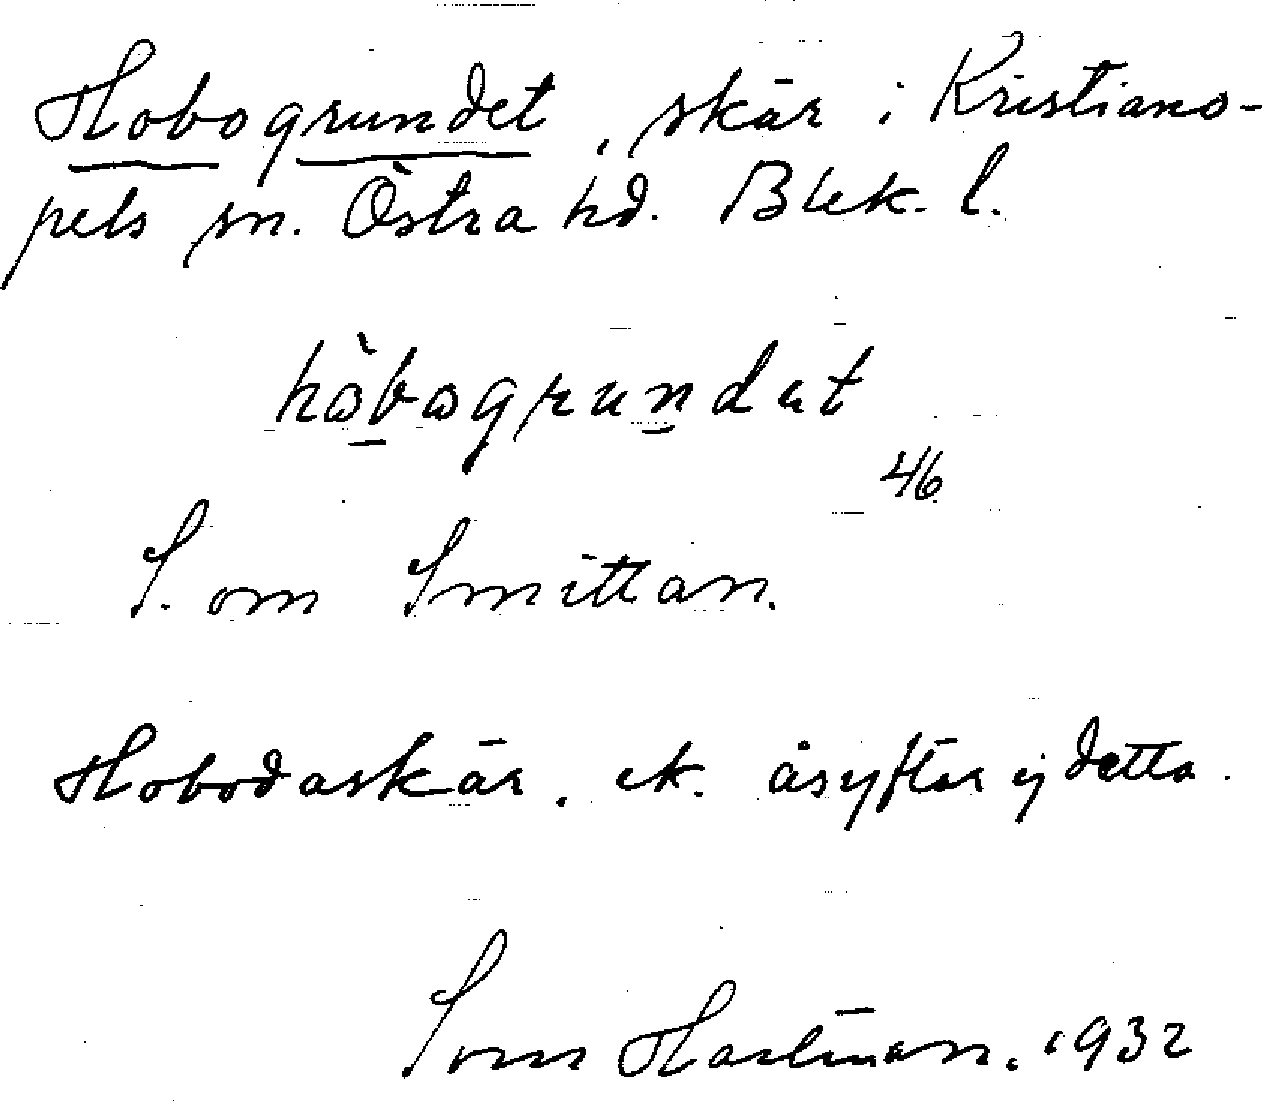 Hobogrundet, skär i Kristiano-
pels sn. Östra hd. Blek. l.
höbogrundet
46
S. om Smittan.
Hobodaskär. ek. åsyftar ej detta.
1932